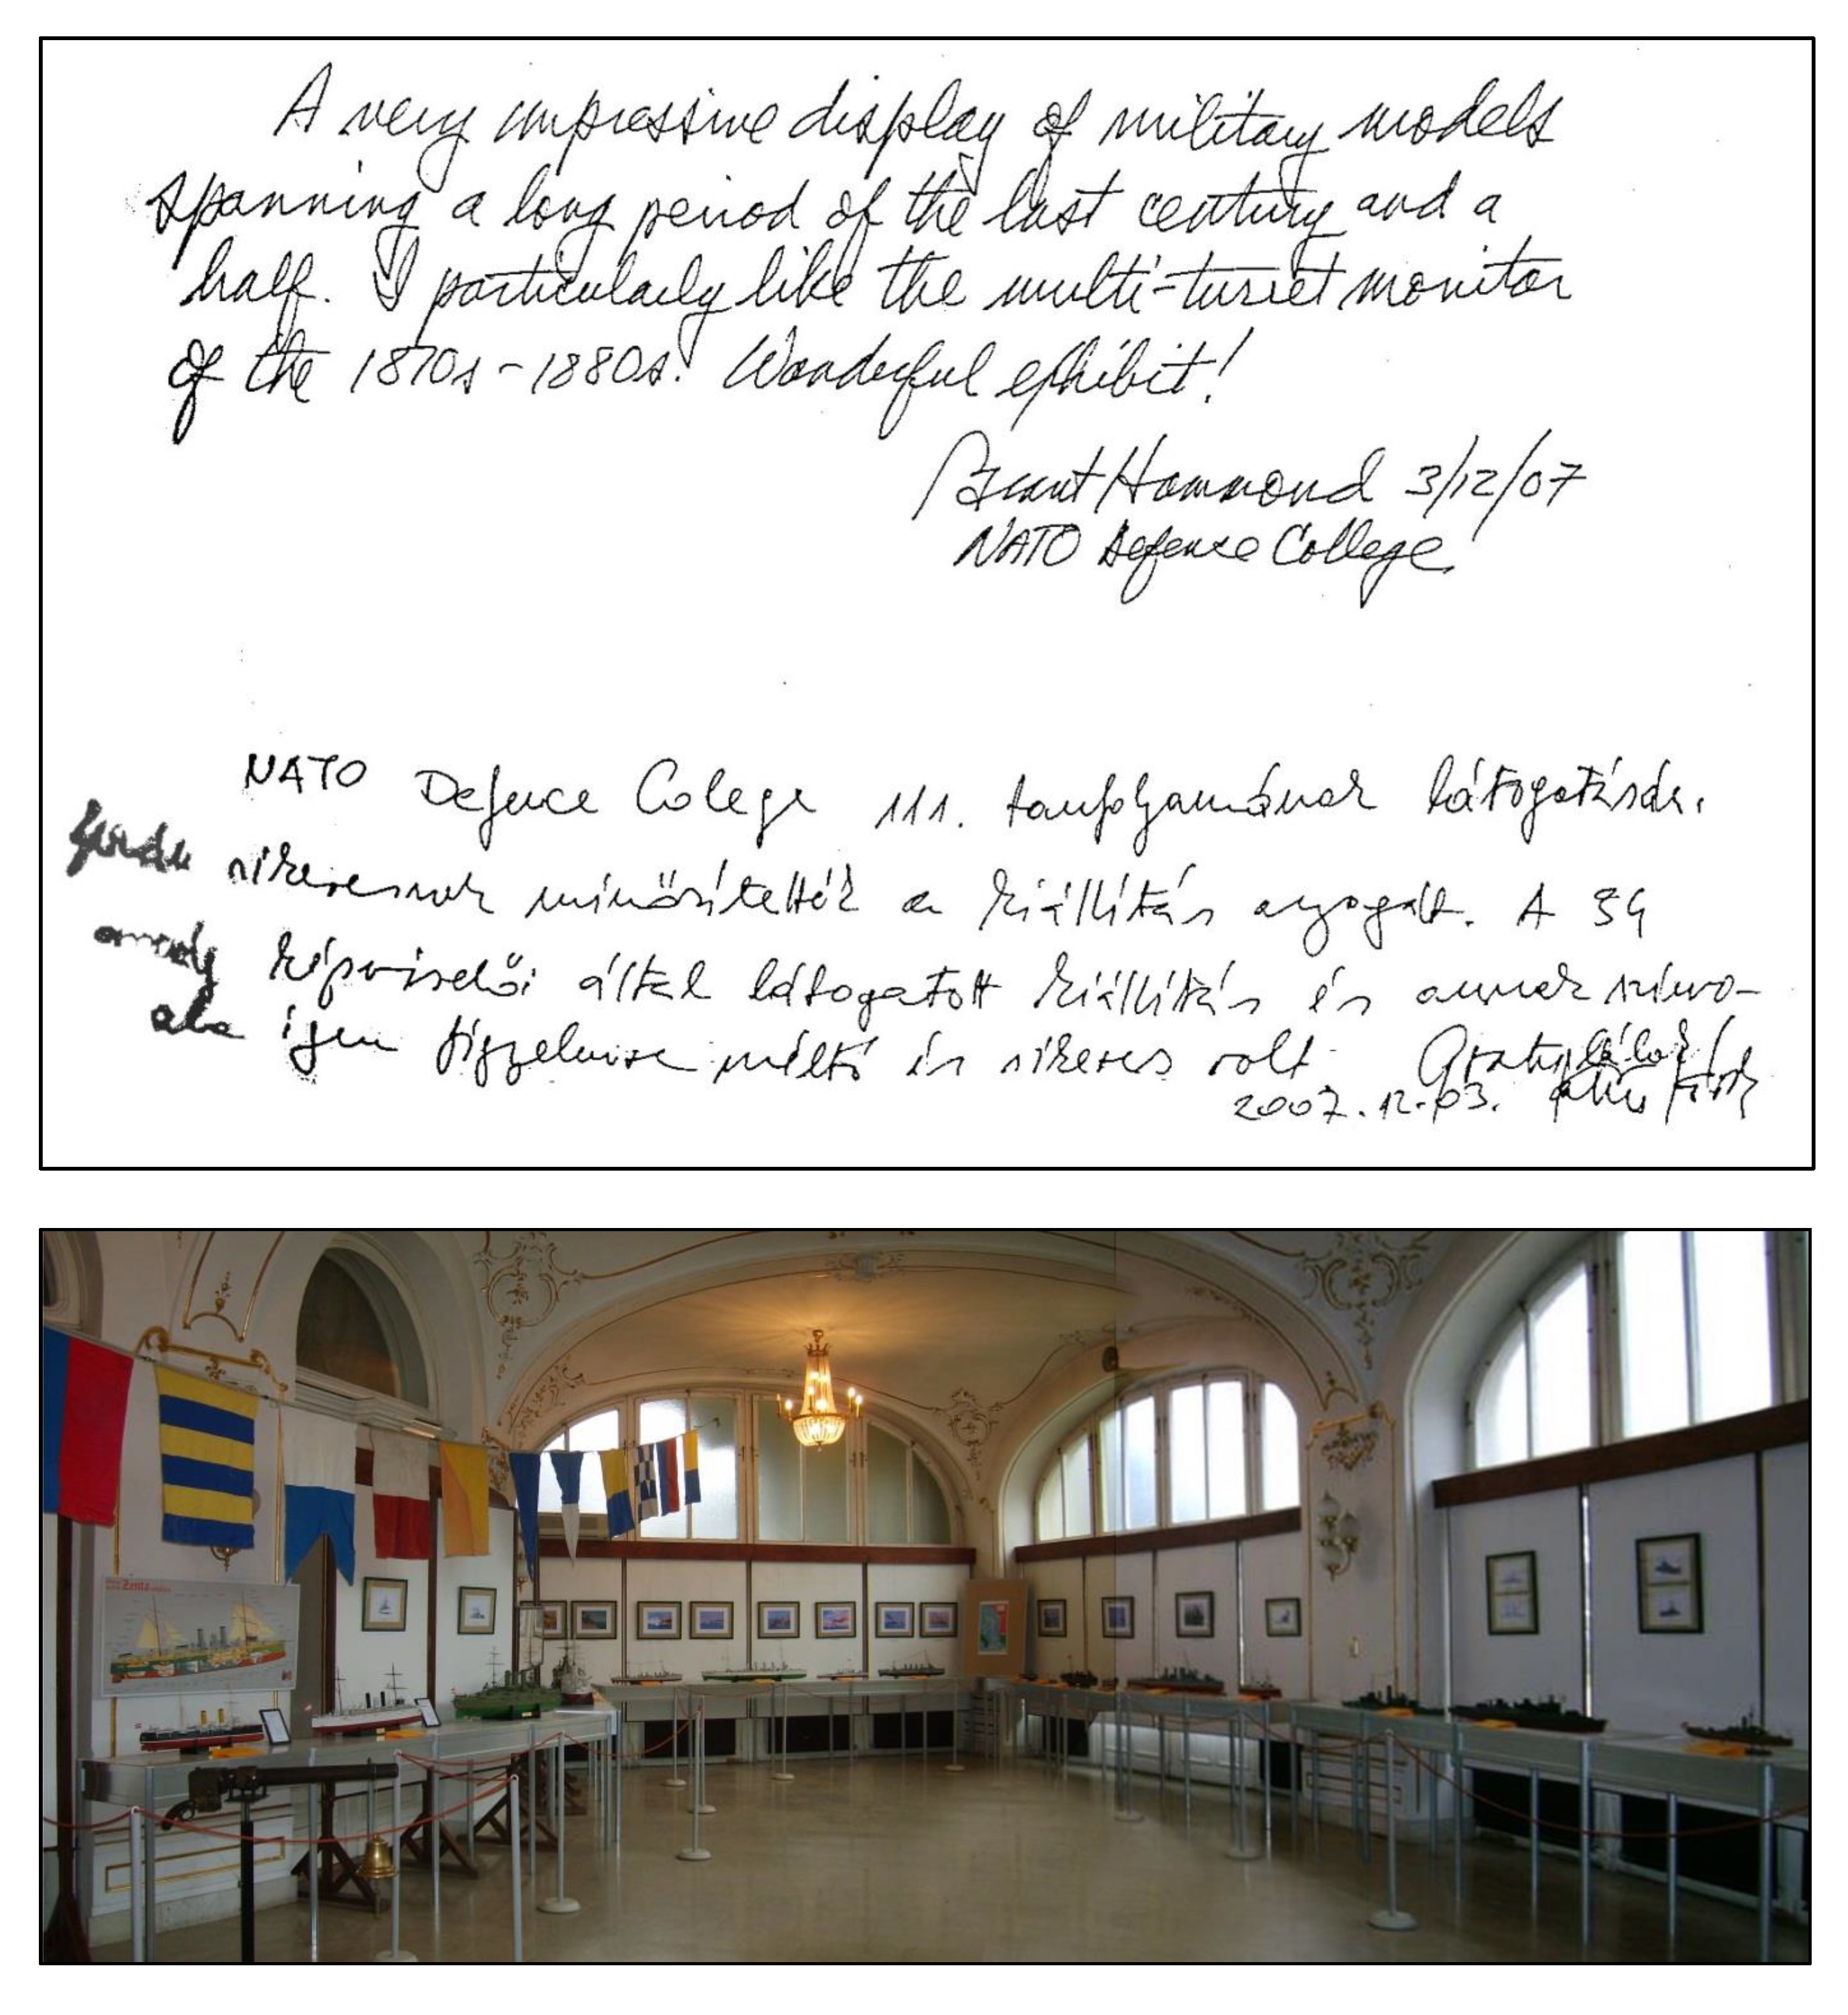 A very impressive display of military models
spanning a long period of the last century and a
half. I particularly like the multi-turret monitor
of the 1870s-1880s. Wonderful exhibit!
Hammond 3/12/07
NATO Defense College
NATO Defence Colege 111. tanfolyamának látogatása.
sikeresnek minősítették a kiállítás anyagát. A 34
képviselői által látogatott kiállítás és annak színvo-
ala igen figyelemre méltó és sikeres volt. Gratulálok!
2007.12.03.
Zenta